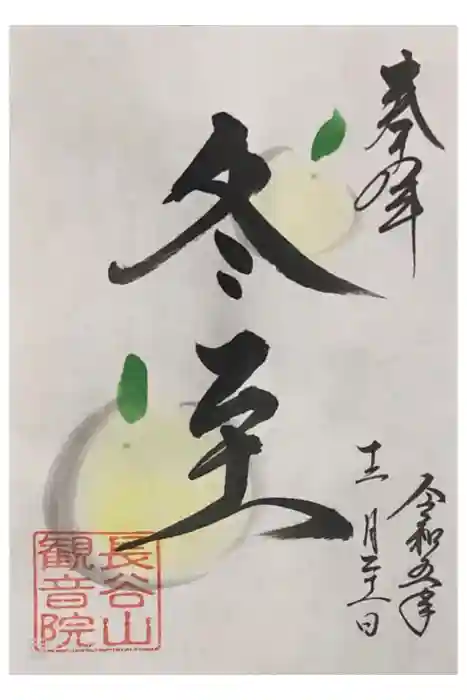 奉拝
冬至
令和五年
十二月二十二日
長谷山
観音院